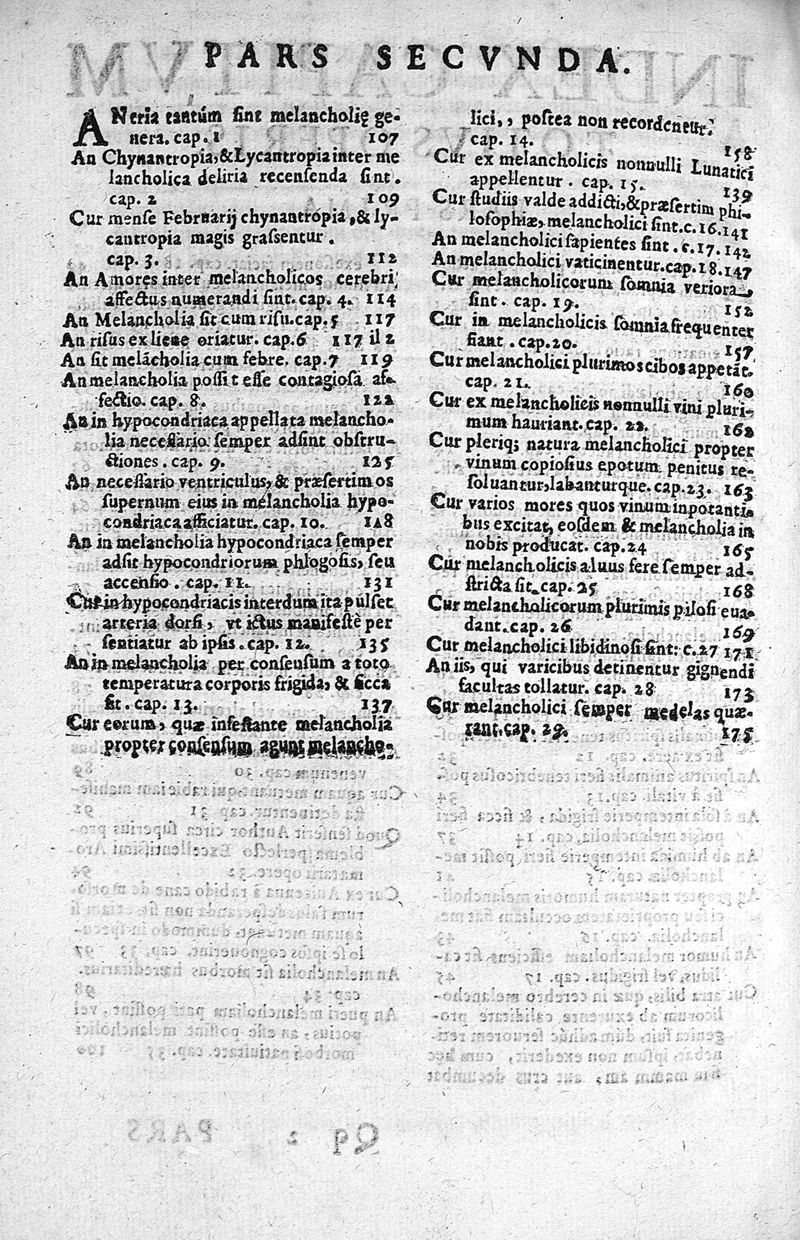 PARS SECVNDA.
ANeria tantúm sint melancholię ge-
nera. cap. 1 107
An Chynantropia, & Lycantropia inter me
lancholica deliria recensenda sint.
cap. 2 109
Cur mense Februarij chynantropia, & ly-
cantropia magis grassentur.
cap. 3. 112
An Amores inter melancholicos cerebri
affectus numerandi sint. cap. 4. 114
An Melancholia sit cum risu. cap. 5 117
An risus ex liene oriatur. cap. 6 117 il 2
An sit melācholia cum febre. cap. 7 119
An melancholia possit esse contagiosa af-
fectio. cap. 8. 122
An in hypocondriaca appellata melancho-
lia necessario semper adsint obstru-
ctiones. cap. 9. 125
An necessario ventriculus, & præsertim os
supernum eius in melancholia hypo-
condriaca afficiatur. cap. 10. 128
An in melancholia hypocondriaca semper
adsit hypocondriorum phlogosis, seu
accensio. cap. 11. 131
Cur in hypocondriacis interdum ita pulset
arteria dorsi, vt ictus manifestè per
sentiatur ab ipsis. cap. 12. 135
An in melancholia per consensum a toto
temperatura corporis frigida, & sicca
sit. cap. 13. 137
Cur eorum, quæ infestante melancholia
propter consensum agunt melancho-
lici,, postea non recordentur.
cap. 14. 158
Cur ex melancholicis nonnulli Lunatici
appellentur. cap. 15. 139
Cur studiis valde addicti, & præsertim phi-
losophiæ, melancholici sint. c. 16. 141
An melancholici sapientes sint. c. 17. 142
An melancholici vaticinentur. cap. 18. 147
Cur melancholicorum somnia veriora
sint. cap. 19. 152
Cur in melancholicis somnia frequenter
fiant. cap. 20. 157
Cur melancholici plurimos cibos appetāt.
cap. 21. 160
Cur ex melancholicis nonnulli vini pluri-
mum hauriant. cap. 22. 162
Cur pleriq; natura melancholici propter
vinum copiosius epotum penitus re-
soluantur, labanturque. cap. 23. 163
Cur varios mores quos vinum inpotanti-
bus excitat, eosdem & melancholia in
nobis producat. cap. 24 165
Cur melancholicis aluus fere semper ad-
stricta sit. cap. 25 168
Cur melancholicorum plurimis pilosi eua-
dant. cap. 26 169
Cur melancholici libidinosi sint: c. 27 171
An iis, qui varicibus detinentur gignendi
facultas tollatur. cap. 28 173
Cur melancholici semper medelas quæ-
rant. cap. 29. 175